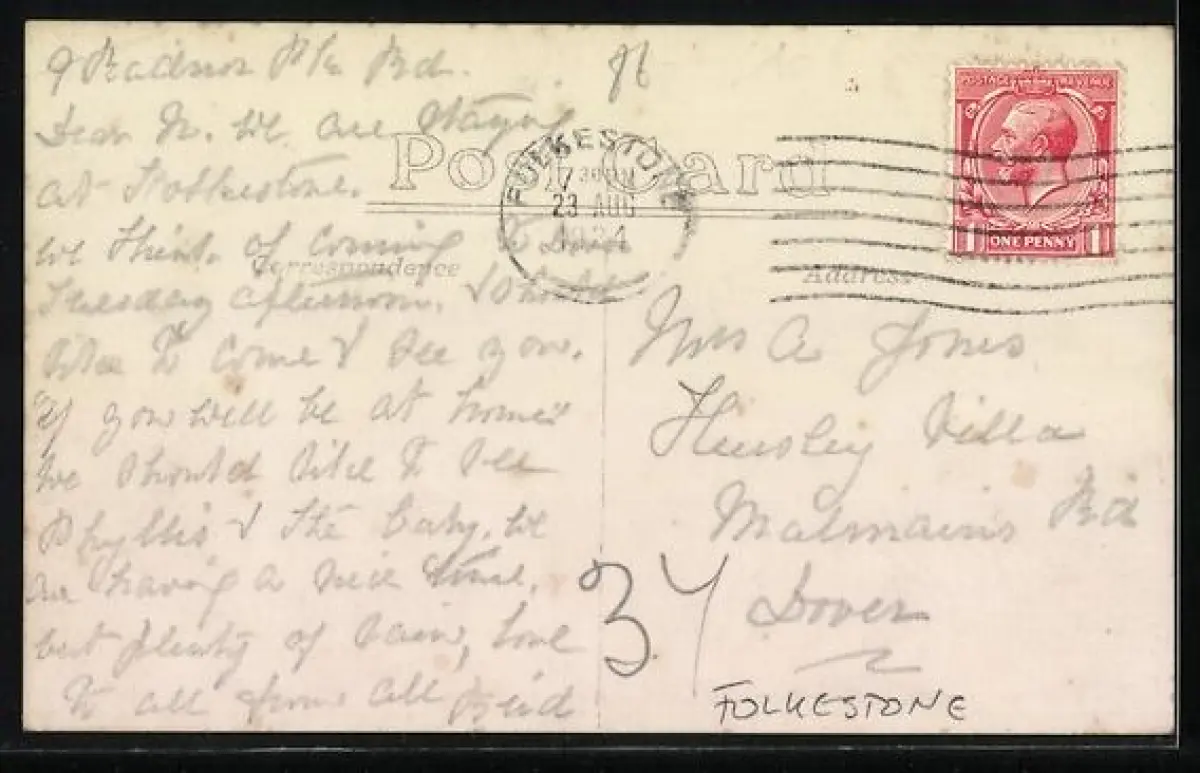 9 Radnor Pk Rd.
Dear N. We are staying
at Folkestone.
we think of coming to Dover
Tuesday afternoon. & should
like to come & see you.
if you will be at home
We should like to see
Phyllis & the baby. We
are having a nice time.
but plenty of rain, love
to all from all
Post Card
Correspondence
Address
FOLKESTONE
7 30 PM
23 AUG
1924
POSTAGE REVENUE
1 ONE PENNY 1
Mrs A Jones
Villa
Malmains Rd
Dover
34
FOLKESTONE